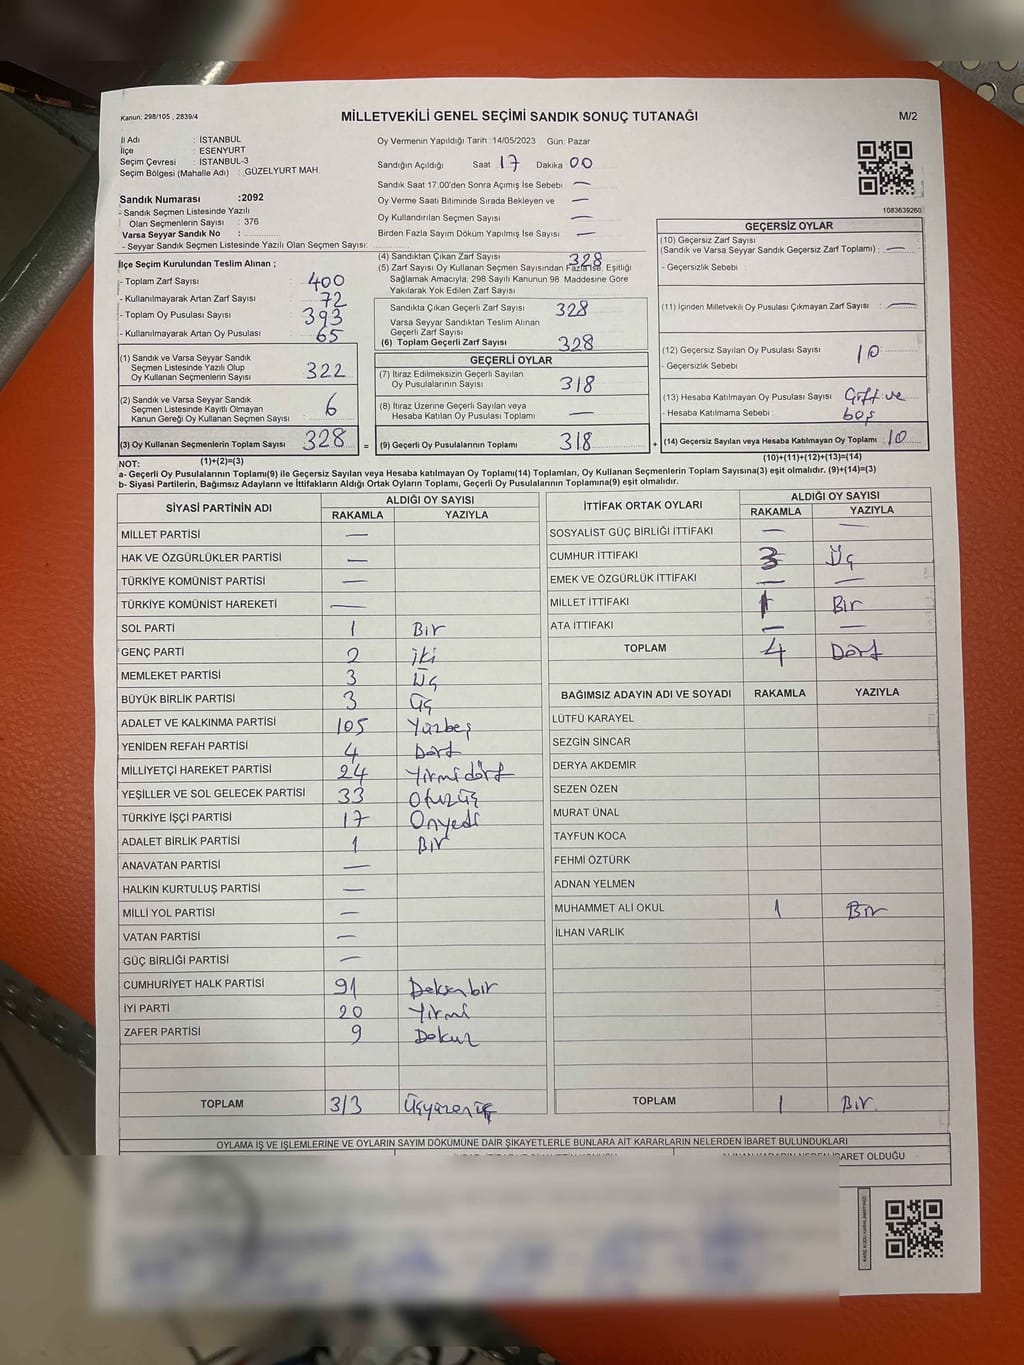 Kanun: 298/105 , 2839/4
MİLLETVEKİLİ GENEL SEÇİMİ SANDIK SONUÇ TUTANAĞI
M/2
İl Adı : İSTANBUL
İlçe : ESENYURT
Seçim Çevresi : İSTANBUL-3
Seçim Bölgesi (Mahalle Adı) : GÜZELYURT MAH.
Oy Vermenin Yapıldığı Tarih :14/05/2023 Gün: Pazar
Sandığın Açıldığı Saat 17 Dakika 00
Sandık Saat 17.00'den Sonra Açımış İse Sebebi —
Oy Verme Saati Bitiminde Sırada Bekleyen ve —
Oy Kullandırılan Seçmen Sayısı —
Birden Fazla Sayım Döküm Yapılmış İse Sayısı —
1083639260
Sandık Numarası :2092
- Sandık Seçmen Listesinde Yazılı
Olan Seçmenlerin Sayısı : 376
Varsa Seyyar Sandık No :
- Seyyar Sandık Seçmen Listesinde Yazılı Olan Seçmen Sayısı:
İlçe Seçim Kurulundan Teslim Alınan ;
- Toplam Zarf Sayısı : 400
- Kullanılmayarak Artan Zarf Sayısı : 72
- Toplam Oy Pusulası Sayısı : 393
- Kullanılmayarak Artan Oy Pusulası : 65
(1) Sandık ve Varsa Seyyar Sandık
Seçmen Listesinde Yazılı Olup
Oy Kullanan Seçmenlerin Sayısı 322
(2) Sandık ve Varsa Seyyar Sandık
Seçmen Listesinde Kayıtlı Olmayan
Kanun Gereği Oy Kullanan Seçmen Sayısı 6
(3) Oy Kullanan Seçmenlerin Toplam Sayısı 328 =
(1)+(2)=(3)
(4) Sandıktan Çıkan Zarf Sayısı 328
(5) Zarf Sayısı Oy Kullanan Seçmen Sayısından Fazla İse, Eşitliği
Sağlamak Amacıyla, 298 Sayılı Kanunun 98. Maddesine Göre
Yakılarak Yok Edilen Zarf Sayısı
Sandıkta Çıkan Geçerli Zarf Sayısı 328
Varsa Seyyar Sandıktan Teslim Alınan
Geçerli Zarf Sayısı
(6) Toplam Geçerli Zarf Sayısı 328
GEÇERLİ OYLAR
(7) İtiraz Edilmeksizin Geçerli Sayılan
Oy Pusulalarının Sayısı 318
(8) İtiraz Üzerine Geçerli Sayılan veya
Hesaba Katılan Oy Pusulası Toplamı —
(9) Geçerli Oy Pusulalarının Toplamı 318 +
GEÇERSİZ OYLAR
(10) Geçersiz Zarf Sayısı
(Sandık ve Varsa Seyyar Sandık Geçersiz Zarf Toplamı) : —
- Geçersizlik Sebebi :
(11) İçinden Milletvekili Oy Pusulası Çıkmayan Zarf Sayısı : —
(12) Geçersiz Sayılan Oy Pusulası Sayısı : 10
- Geçersizlik Sebebi :
(13) Hesaba Katılmayan Oy Pusulası Sayısı : Çift ve
- Hesaba Katılmama Sebebi : boş
(14) Geçersiz Sayılan veya Hesaba Katılmayan Oy Toplamı : 10
(10)+(11)+(12)+(13)=(14)
NOT:
a- Geçerli Oy Pusulalarının Toplamı(9) ile Geçersiz Sayılan veya Hesaba katılmayan Oy Toplamı(14) Toplamları, Oy Kullanan Seçmenlerin Toplam Sayısına(3) eşit olmalıdır. (9)+(14)=(3)
b- Siyasi Partilerin, Bağımsız Adayların ve İttifakların Aldığı Ortak Oyların Toplamı, Geçerli Oy Pusulalarının Toplamına(9) eşit olmalıdır.
SİYASİ PARTİNİN ADI ALDIĞI OY SAYISI
RAKAMLA YAZIYLA
MİLLET PARTİSİ —
HAK VE ÖZGÜRLÜKLER PARTİSİ —
TÜRKİYE KOMÜNİST PARTİSİ —
TÜRKİYE KOMÜNİST HAREKETİ —
SOL PARTİ 1 Bir
GENÇ PARTİ 2 iki
MEMLEKET PARTİSİ 3 Üç
BÜYÜK BİRLİK PARTİSİ 3 Üç
ADALET VE KALKINMA PARTİSİ 105 Yüzbeş
YENİDEN REFAH PARTİSİ 4 Dört
MİLLİYETÇİ HAREKET PARTİSİ 24 Yirmi dört
YEŞİLLER VE SOL GELECEK PARTİSİ 33 Otuzüç
TÜRKİYE İŞÇİ PARTİSİ 17 Onyedi
ADALET BİRLİK PARTİSİ 1 Bir
ANAVATAN PARTİSİ —
HALKIN KURTULUŞ PARTİSİ —
MİLLİ YOL PARTİSİ —
VATAN PARTİSİ —
GÜÇ BİRLİĞİ PARTİSİ —
CUMHURİYET HALK PARTİSİ 91 Doksanbir
İYİ PARTİ 20 Yirmi
ZAFER PARTİSİ 9 Dokuz
TOPLAM 313 Üçyüzonüç
İTTİFAK ORTAK OYLARI ALDIĞI OY SAYISI
RAKAMLA YAZIYLA
SOSYALİST GÜÇ BİRLİĞİ İTTİFAKI — —
CUMHUR İTTİFAKI 3 Üç
EMEK VE ÖZGÜRLÜK İTTİFAKI — —
MİLLET İTTİFAKI 1 Bir
ATA İTTİFAKI — —
TOPLAM 4 Dört
BAĞIMSIZ ADAYIN ADI VE SOYADI RAKAMLA YAZIYLA
LÜTFÜ KARAYEL
SEZGİN SİNCAR
DERYA AKDEMİR
SEZEN ÖZEN
MURAT ÜNAL
TAYFUN KOCA
FEHMİ ÖZTÜRK
ADNAN YELMEN
MUHAMMET ALİ OKUL 1 Bir
İLHAN VARLIK
TOPLAM 1 Bir.
OYLAMA İŞ VE İŞLEMLERİNE VE OYLARIN SAYIM DÖKÜMÜNE DAİR ŞİKAYETLERLE BUNLARA AİT KARARLARIN NELERDEN İBARET BULUNDUKLARI
İBARET OLDUĞU